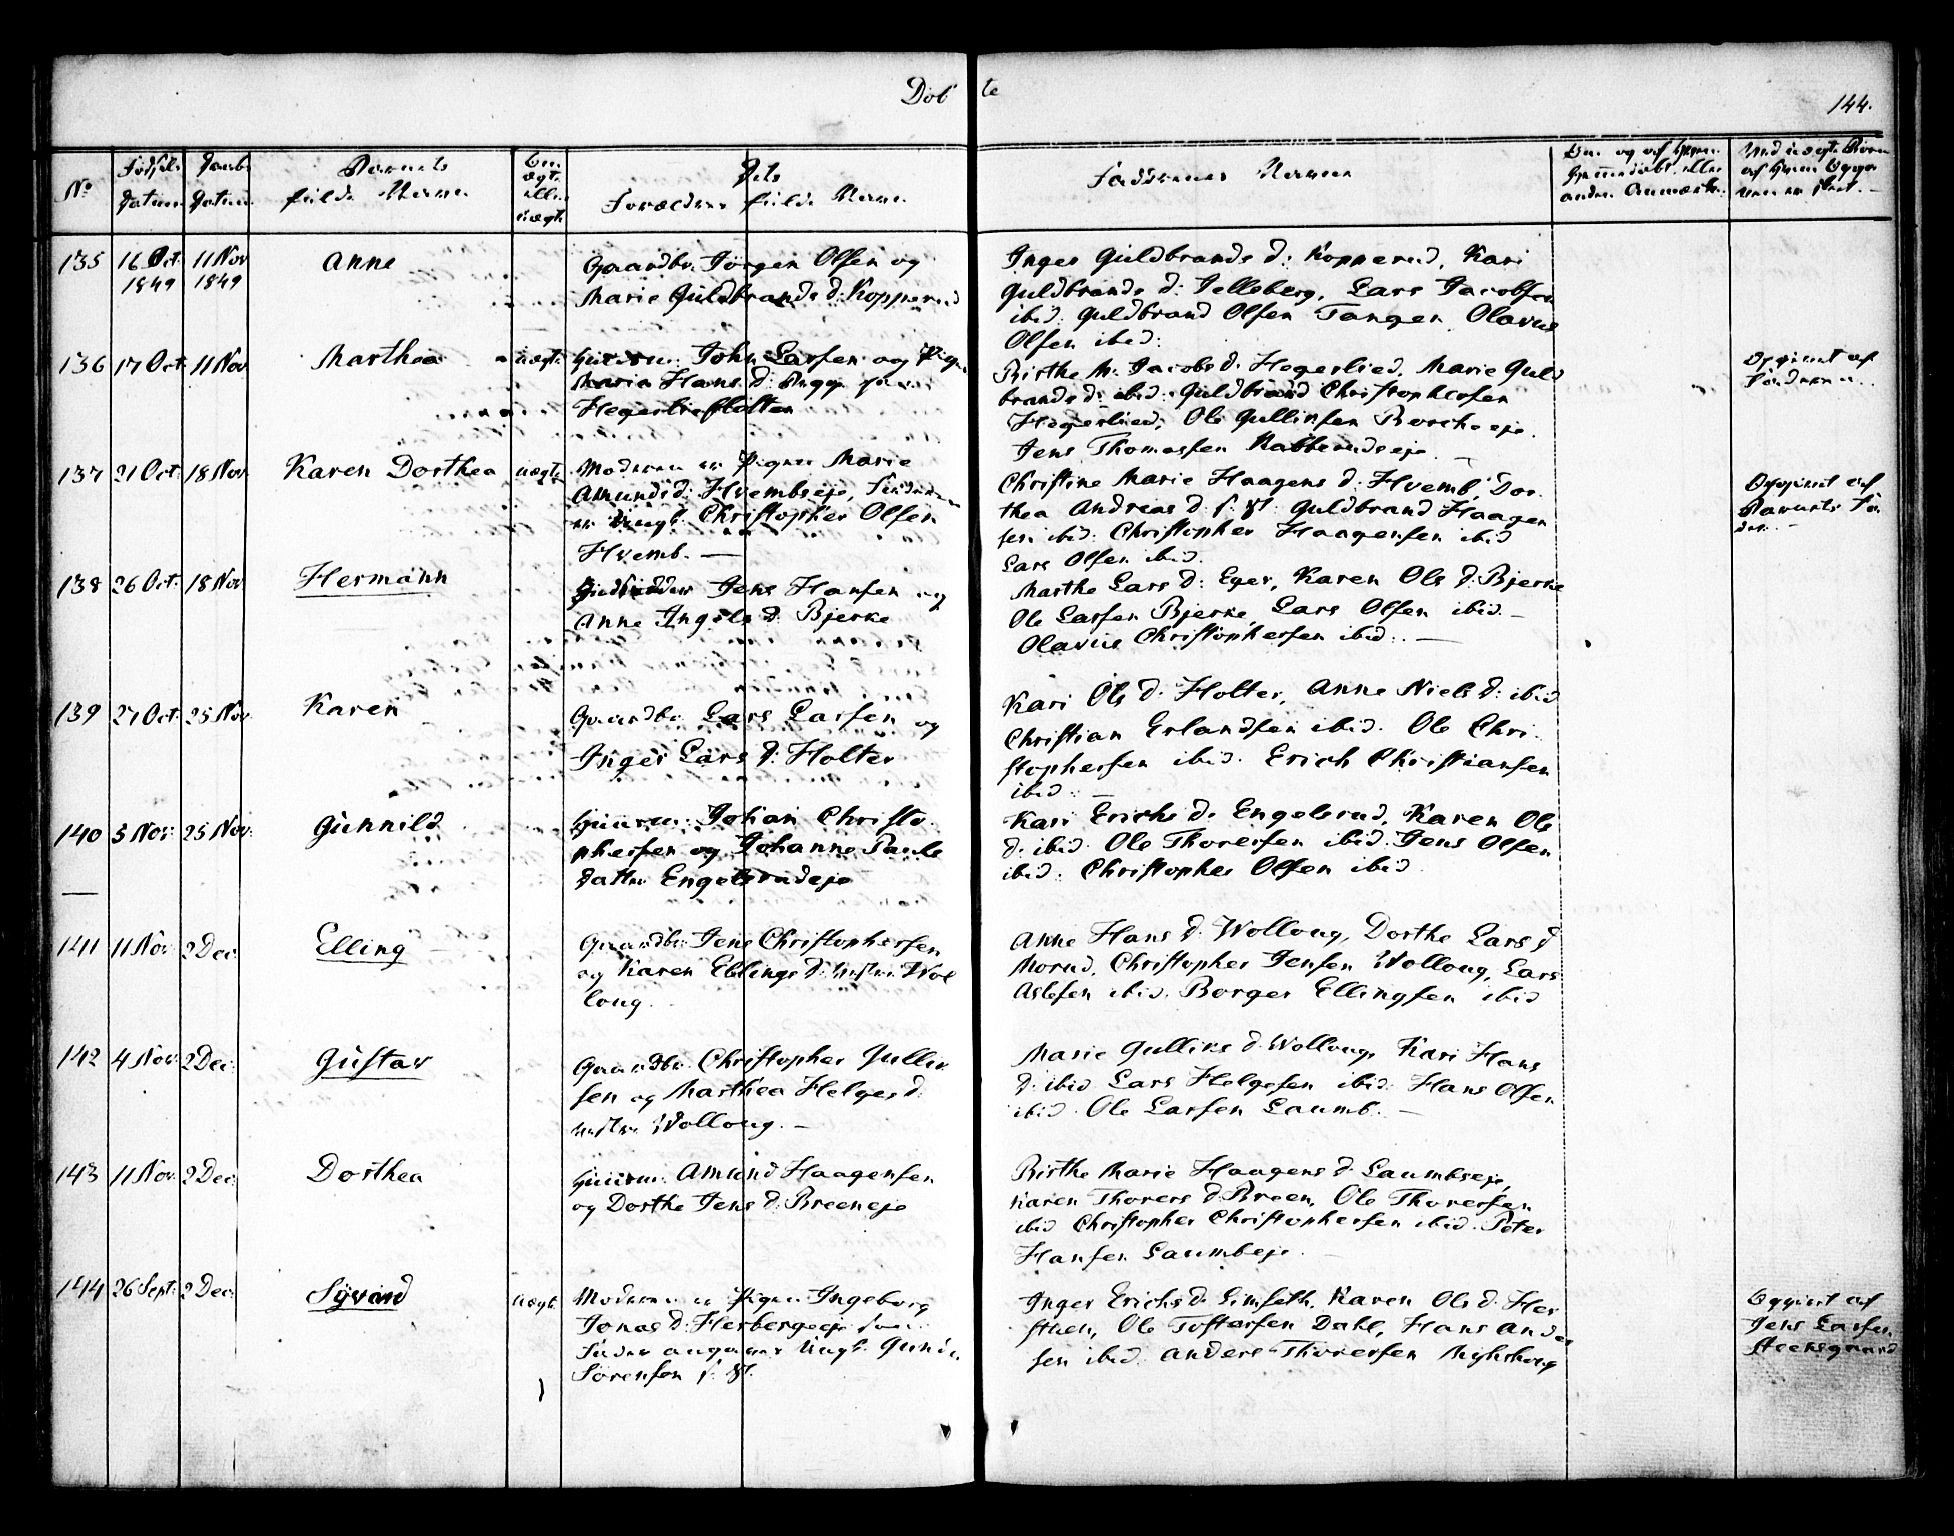 Døb te
144.
No
Fødsels Datum
Daabs Datum
Barnets fulde Navn
Om ægte eller uægte
Dets Forældres fulde Navn
Faddernes Navne
135 16 Oct 1849 11 Nov 1849 Anne
Gaardbr. Jørgen Olsen og
Marie Guldbrands d: Kopperud
Inger Guldbrands d: Kopperud, Kari
Guldbrands d: Jelleberg, Lars Jacobsen
ibid. Guldbrand Olsen Tangen Olavus
Olsen ibid:
136 17 Oct 11 Nov Marthea uægte
Huusm. John Larsen og Pige
Maria Hans d:
Hegerliestolten
Birthe M. Jacobs d. Hegerlied, Marie Guld
brands d: ibid: Guldbrand Christophersen
Hegerlied, Ole Gullixsen
Jens Thomassen Rabberudseje
Opgivet af
Faderen
137 21 Oct: 18 Nov Karen Dorthea uægte
Moderen er Pigen Marie
Amunds d: Hvembseje, Faderen
er Ungk. Christopher Olsen
Hvemb. —
Christine Marie Haagens d: Hvemb, Dor
thea Andreas d: s: St: Guldbrand Haagen
sen ibid: Christopher Haagensen ibid
Lars Olsen ibid.
Opgivet af
Barnets Fa
der. —
138 26 Oct: 18 Nov Hermann
Jens Hansen og
Anne Ingels d: Bjerke
Marthe Lars d: Eger, Karen Ols d: Bjerke
Ole Larsen Bjerke, Lars Olsen ibid. —
Olavus Christophersen ibid: —
139 27 Oct: 25 Nov: Karen
Gaardbr. Lars Larsen og
Inger Lars d: Holter
Kari Ols d: Holter, Anne Niels d: ibid
Christian Erlandsen ibid. Ole Chri
stophersen ibid. Erich Christiansen
ibid. —
140 3 Nov: 25 Nov: Gunnild
Huusm. Johan Christo
phersen og Johanne Pauls
datter Engelsrudeje
Kari Erichs d. Engelsrud, Karen Ols
d. ibid. Ole Thoresen ibid. Jens Olsen
ibid. Christopher Olsen ibid.
141 11 Nov: 2 Dec: Elling
Gaardbr. Jens Christophersen
og Karen Ellings d: Wol
loug.
Anne Hans d. Wolloug, Dorthe Lars d
Morud, Christopher Jensen Wolloug, Lars
Aslesen ibid. Borger Ellingsen ibid
142 4 Nov: 2 Dec: Gustav
Gaardbr. Christopher Gullix
sen og Marthea Helges d:
Wolloug. —
Marie Gullixs d. Wolloug, Kari Hans
d: ibid Lars Helgesen ibid. Hans Olsen
ibid. Ole Larsen Laumb. —
143 11 Nov: 2 Dec: Dorthea
Huusm. Amund Haagensen
og Dorthe Jens d: Breeneje
Birthe Marie Haagens d. Laumbseje,
Karen Thorers d: Breen, Ole Thoresen
ibid Christopher Christophersen ibid. Peter
Hansen Laumbeje. —
144 26 Sept: 2 Dec: Syvard uægte
Moderen er Pigen Ingeborg
Jonas d: Herbergseje som
Fader angives Ungk: Gunde
Sørensen s: St.
Inger Erichs d. Limseth, Karen Ols d. Her
sthen, Ole Tostersen Dahl, Hans Ander
sen ibid. Anders Thoresen
Opgivet af
Jens Larsen
Steensgaard